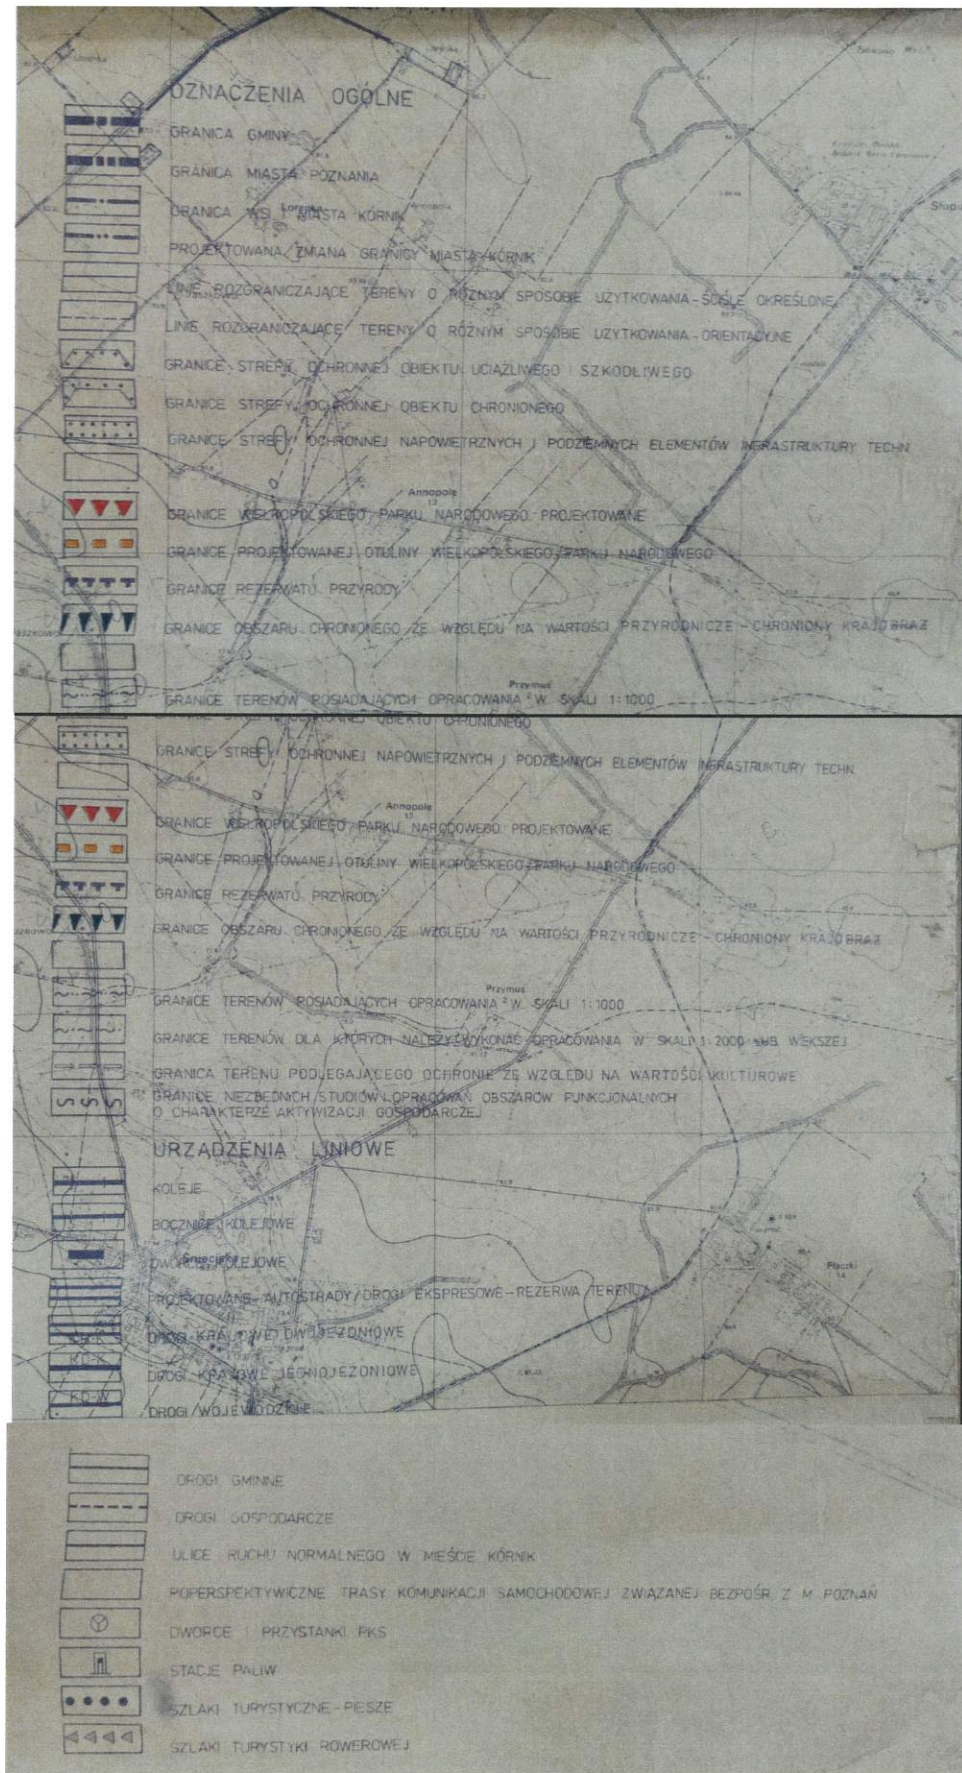 OZNACZENIA OGÓLNE
GRANICA GMINY
GRANICA MIASTA POZNANIA
GRANICA WSI I MIASTA KÓRNIK
PROJEKTOWANA ZMIANA GRANICY MIASTA KÓRNIK
LINIE ROZGRANICZAJĄCE TERENY O RÓŻNYM SPOSOBIE UŻYTKOWANIA - ŚCIŚLE OKREŚLONE
LINIE ROZGRANICZAJĄCE TERENY O RÓŻNYM SPOSOBIE UŻYTKOWANIA - ORIENTACYJNE
GRANICE STREFY OCHRONNEJ OBIEKTU UCIĄŻLIWEGO I SZKODLIWEGO
GRANICE STREFY OCHRONNEJ OBIEKTU CHRONIONEGO
GRANICE STREFY OCHRONNEJ NAPOWIETRZNYCH I PODZIEMNYCH ELEMENTÓW INFRASTRUKTURY TECHN
Annopole
GRANICE WIELKOPOLSKIEGO PARKU NARODOWEGO PROJEKTOWANE
GRANICE PROJEKTOWANEJ OTULINY WIELKOPOLSKIEGO PARKU NARODOWEGO
GRANICE REZERWATU PRZYRODY
GRANICE OBSZARU CHRONIONEGO ZE WZGLĘDU NA WARTOŚCI PRZYRODNICZE - CHRONIONY KRAJOBRAZ
Przymuś
GRANICE TERENÓW POSIADAJĄCYCH OPRACOWANIA W SKALI 1:1000
OCHRONNEJ OBIEKTU CHRONIONEGO
GRANICE STREFY OCHRONNEJ NAPOWIETRZNYCH I PODZIEMNYCH ELEMENTÓW INFRASTRUKTURY TECHN
Annopole
GRANICE WIELKOPOLSKIEGO PARKU NARODOWEGO PROJEKTOWANE
GRANICE PROJEKTOWANEJ OTULINY WIELKOPOLSKIEGO PARKU NARODOWEGO
GRANICE REZERWATU PRZYRODY
GRANICE OBSZARU CHRONIONEGO ZE WZGLĘDU NA WARTOŚCI PRZYRODNICZE - CHRONIONY KRAJOBRAZ
Przymuś
GRANICE TERENÓW POSIADAJĄCYCH OPRACOWANIA W SKALI 1:1000
GRANICE TERENÓW DLA KTÓRYCH NALEŻY WYKONAĆ OPRACOWANIA W SKALI 1:2000 LUB WIĘKSZEJ
GRANICA TERENU PODLEGAJĄCEGO OCHRONIE ZE WZGLĘDU NA WARTOŚCI KULTUROWE
GRANICE NIEZBĘDNYCH STUDIÓW I OPRACOWAŃ OBSZARÓW FUNKCJONALNYCH
O CHARAKTERZE AKTYWIZACJI GOSPODARCZEJ
URZĄDZENIA LINIOWE
KOLEJE
BOCZNICE KOLEJOWE
Śnieciska
DWORCE KOLEJOWE
Płaczki
PROJEKTOWANE AUTOSTRADY/DROGI EKSPRESOWE - REZERWA TERENU
DROGI KRAJOWE DWUJEZDNIOWE
KD-K
DROGI KRAJOWE JEDNOJEZDNIOWE
KD-W
DROGI WOJEWÓDZKIE
DROGI GMINNE
DROGI GOSPODARCZE
ULICE RUCHU NORMALNEGO W MIEŚCIE KÓRNIK
POPERSPEKTYWICZNE TRASY KOMUNIKACJI SAMOCHODOWEJ ZWIĄZANEJ BEZPOŚR. Z M. POZNAŃ
DWORCE I PRZYSTANKI PKS
STACJE PALIW
SZLAKI TURYSTYCZNE - PIESZE
SZLAKI TURYSTYKI ROWEROWEJ